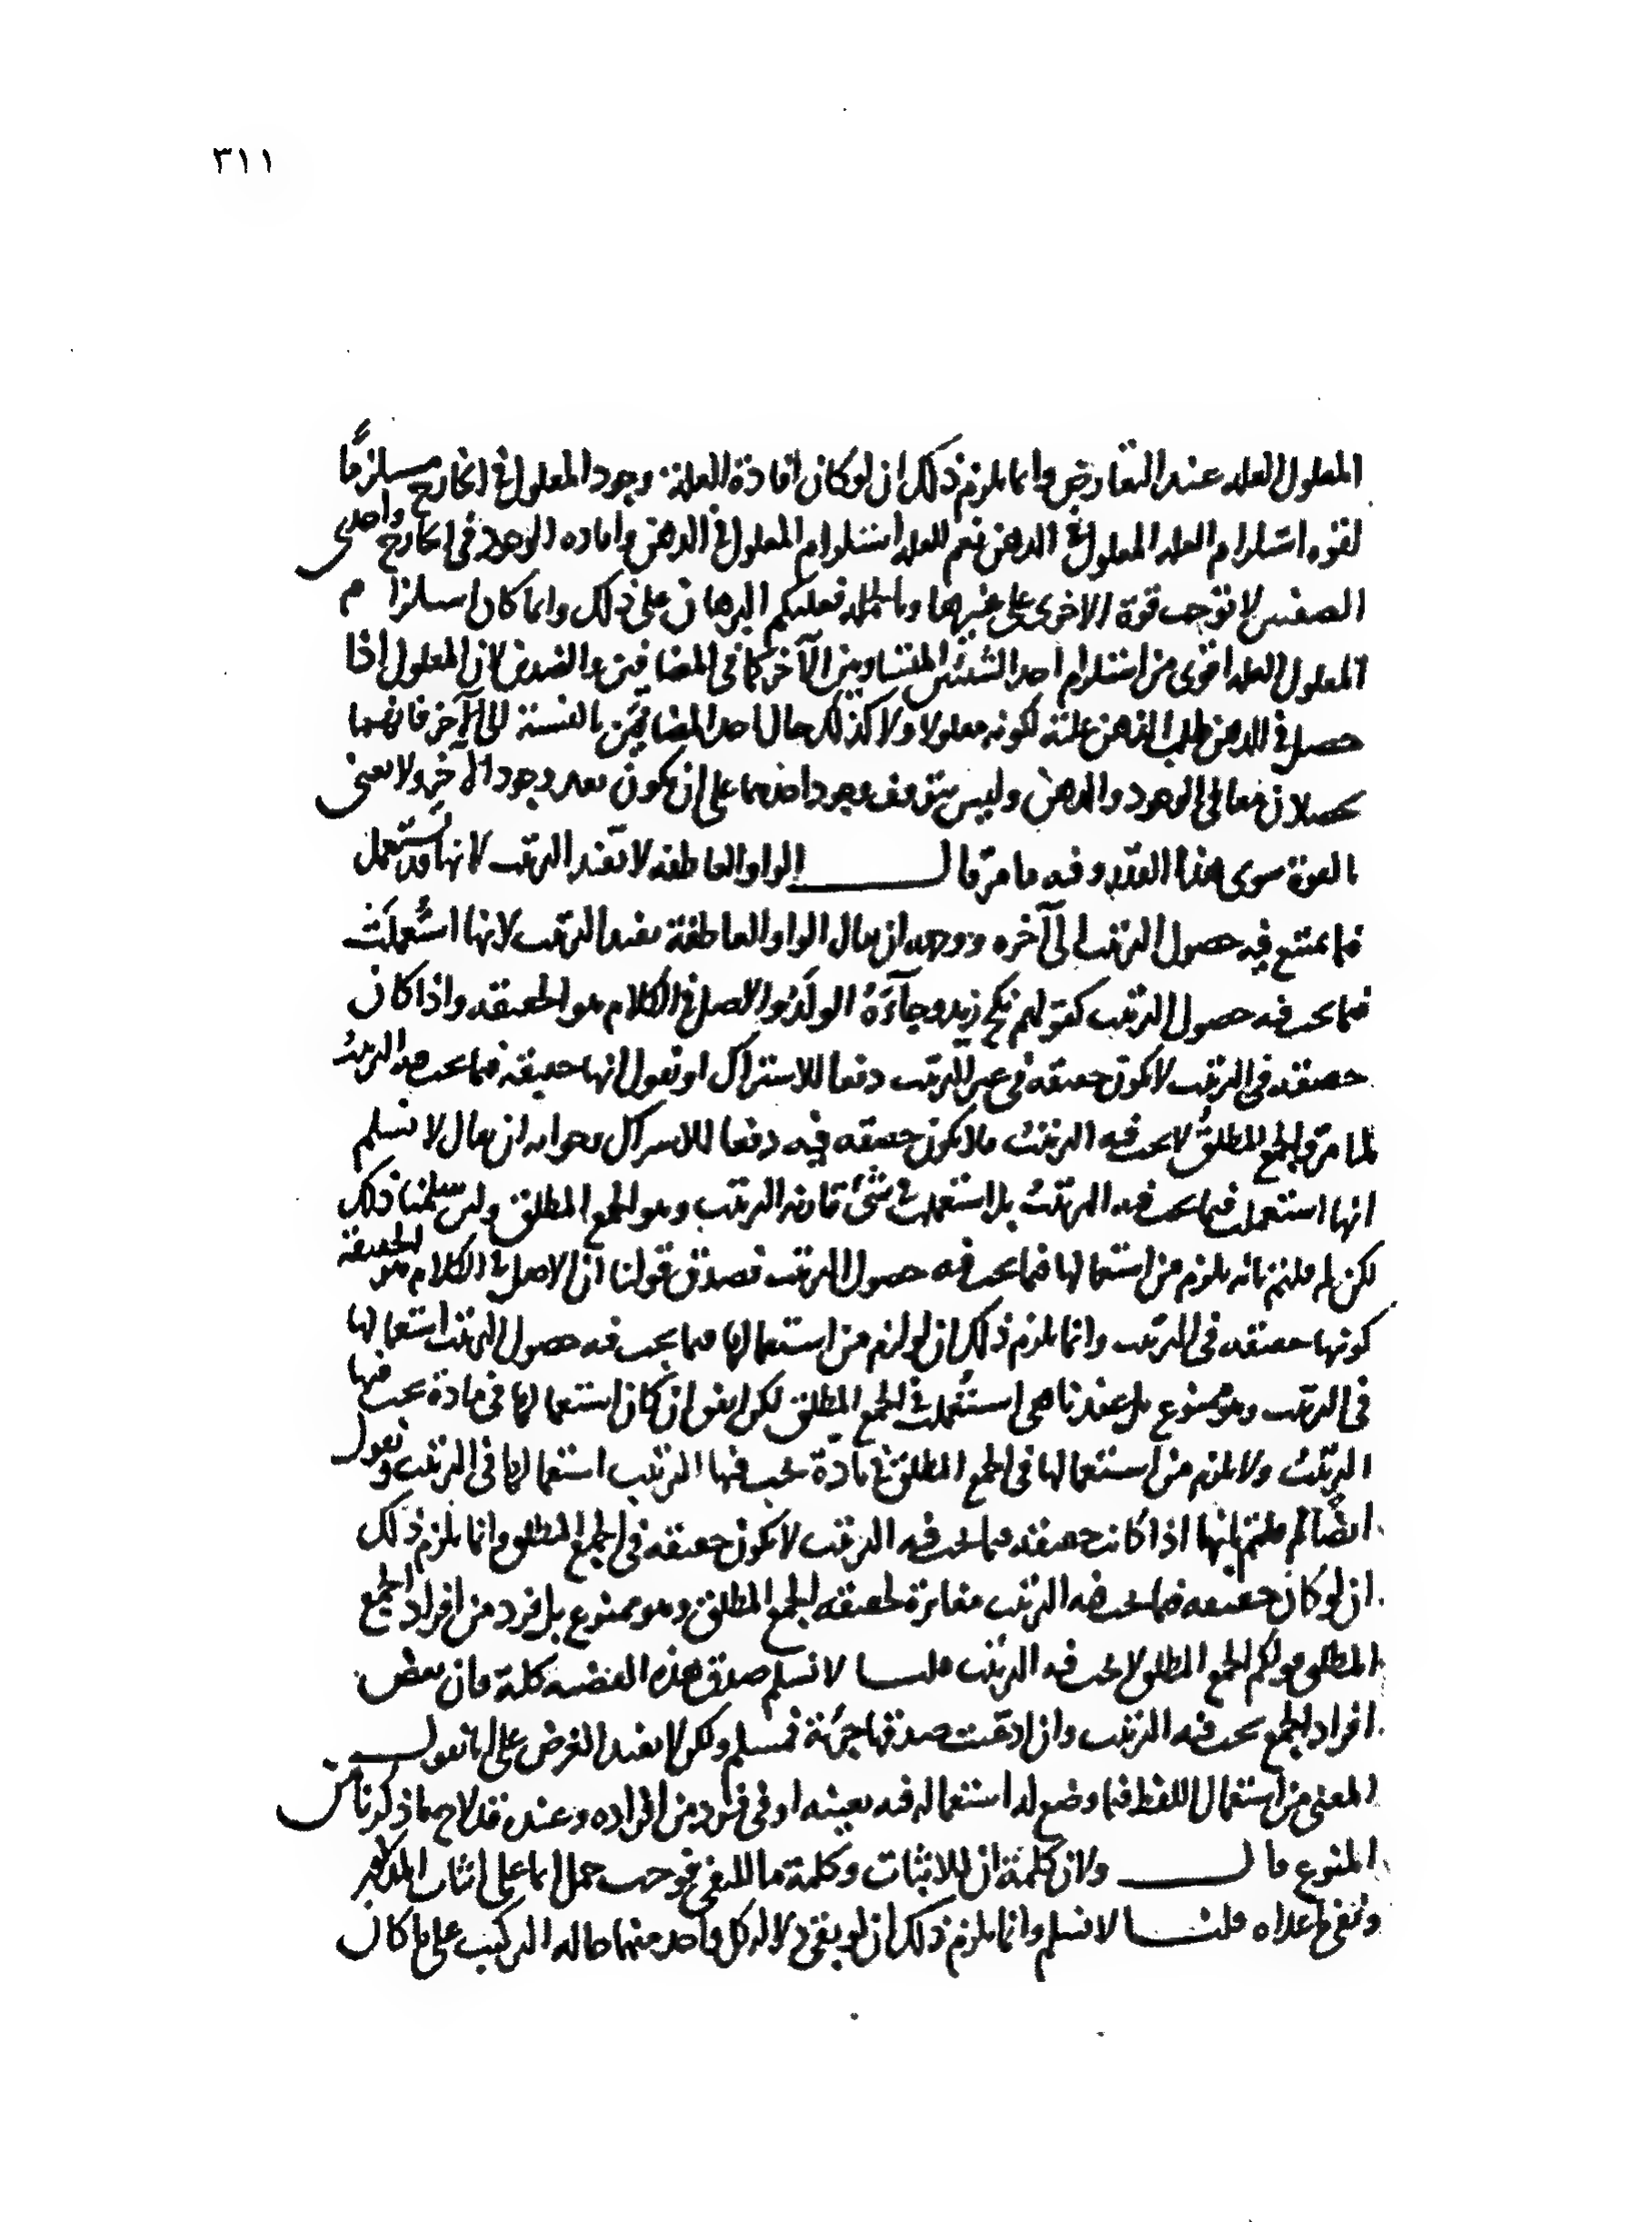 ٣١١
المعلول العلة عند التعارض وانما يلزم ذلك ان لو كان افادة العلة وجود المعلول في الخارج مستلزمًا
لقوة استلزام العلة المعلول في الذهن نعم للعلة استلزام المعلول في الذهن وافادة الوجود في الخارج واحدى
الصفتين لا توجب قوة الاخرى على غيرها وبالجملة فعليكم البرهان على ذلك وانما كان استلزام
المعلول العلة اقوى من استلزام احد الشيئين المتساويين الآخر كما في المضافين والضدين لان المعلول اذا
حصل في الذهن طلب الذهن علته لكونه معلولا ولا كذلك حال احد المضافين بالنسبة الى الآخر فانهما
يحصلان معا في الوجود والذهن وليس يتوقف وجود احدهما على ان يكون بعد وجود الآخر ولا نعني
بالقوة سوى هذا القدر وفيه ما مر قال الواو العاطفة لا تفيد الترتيب لانها قد تستعمل
فيما يمتنع فيه حصول الترتيب الى آخره ووجهه ان يقال الواو العاطفة تفيد الترتيب لانها استُعملت
فيما يجب فيه حصول الترتيب كقولهم نكح زيد وجاءَهُ الولد والاصل في الكلام هو الحقيقة واذا كان
حقيقة في الترتيب لا يكون حقيقة في غير الترتيب دفعا للاشتراك او نقول انها حقيقة فيما يجب فيه الترتيب
لما مر والجمع المطلق لا يجب فيه الترتيب فلا يكون حقيقة فيه دفعا للاشتراك وجوابه ان يقال لا نسلم
انها استعملت فيما يجب فيه الترتيب بل استعملت في شيء قارنه الترتيب وهو الجمع المطلق ولئن سلمنا ذلك
لكن لم قلتم بانه يلزم من استعمالها فيما يجب فيه حصول الترتيب فصدق قولنا ان الاصل في الكلام هو الحقيقة
كونها حقيقة في الترتيب وانما يلزم ذلك ان لو لزم من استعمالها فيما يجب فيه حصول الترتيب استعمالها
في الترتيب وهو ممنوع بل عندنا هي استُعملت في الجمع المطلق لكن اتفق ان كان استعمالها في مادة يجب فيها
الترتيب ولا يلزم من استعمالها في الجمع المطلق في مادة يجب فيها الترتيب استعمالها في الترتيب ونقول
ايضًا لم قلتم بانها اذا كانت حقيقة فيما يجب فيه الترتيب لا يكون حقيقة في الجمع المطلق وانما يلزم ذلك
ان لو كان حقيقة فيما يجب فيه الترتيب مغايرة لحقيقة الجمع المطلق وهو ممنوع بل فرد من افراد الجمع
المطلق قولكم الجمع المطلق لا يجب فيه الترتيب قلنا لا نسلم صدق هذه القضية كلية فان بعض
افراد الجمع يجب فيه الترتيب وان ادعيت صدقها جزئية فمسلم ولكن لا يفيد الغرض على انا نقول
المعنى من استعمال اللفظ فيما وضع له استعماله فيه بعينه او في فرد من افراده وعند قد لاح مما ذكرنا من
المنوع قال ولان كلمة ان للاثبات وكلمة ما للنفي فوجب حمل انما على اثبات المذكور
ونفي ما عداه قلنا لا نسلم وانما يلزم ذلك ان لو بقي دلالة كل واحد منهما حالة التركيب على ما كان